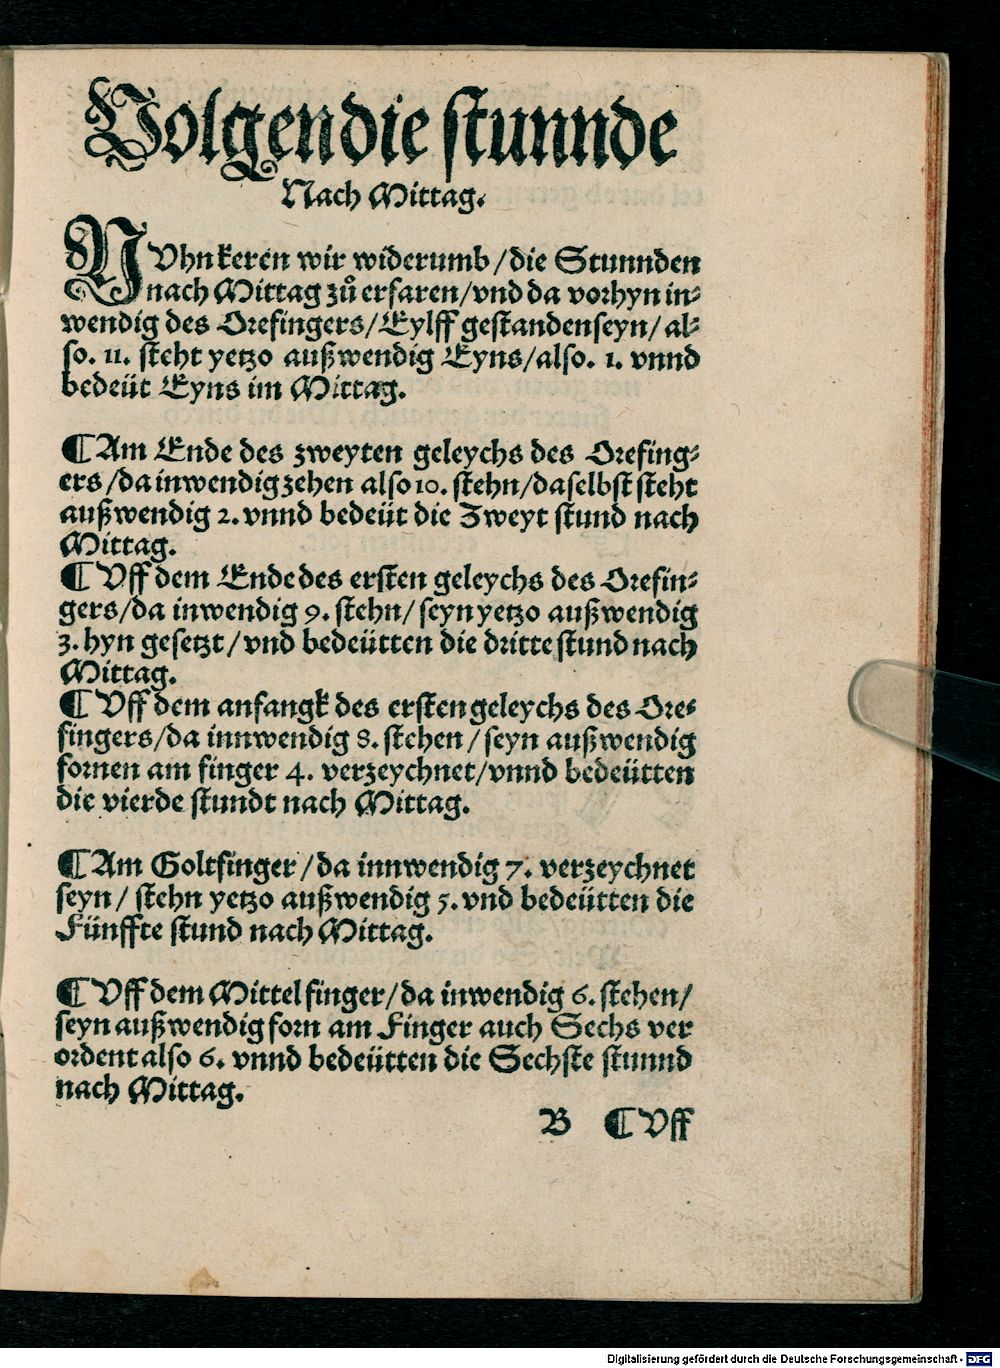 Volgen die stunnde
Nach Mittag.
NVhn keren wir widerumb / die Stunnden
nach Mittag zů erfaren / vnd da vorhyn in⸗
wendig des Orefingers / Eylff gestanden seyn / al⸗
so. 11. steht yetzo außwendig Eyns / also. 1. vnnd
bedeüt Eyns im Mittag.
¶ Am Ende des zweyten geleychs des Orefing⸗
ers / da inwendig zehen also 10. stehn / daselbst steht
außwendig 2. vnnd bedeüt die Zweyt stund nach
Mittag.
¶ Vff dem Ende des ersten geleychs des Orefin⸗
gers / da inwendig 9. stehn / seyn yetzo außwendig
3. hyn gesetzt / vnd bedeütten die dritte stund nach
Mittag.
¶ Vff dem anfangk des ersten geleychs des Ore⸗
fingers / da innwendig 8. stehen / seyn außwendig
fornen am finger 4. verzeychnet / vnnd bedeütten
die vierde stundt nach Mittag.
¶ Am Goltfinger / da innwendig 7. verzeychnet
seyn / stehn yetzo außwendig 5. vnd bedeütten die
Fünffte stund nach Mittag.
¶ Vff dem Mittelfinger / da inwendig 6. stehen /
seyn außwendig forn am Finger auch Sechs ver
ordent also 6. vnnd bedeütten die Sechste stunnd
nach Mittag.
B ¶ Vff
Digitalisierung gefördert durch die Deutsche Forschungsgemeinschaft - DFG